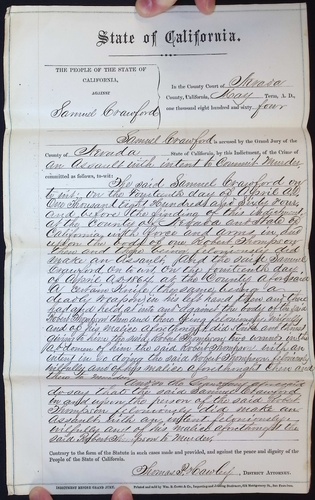 State of California.
THE PEOPLE OF THE STATE OF
CALIFORNIA,
AGAINST
Samuel Crawford
In the County Court of Nevada
County, California, May Term, A. D.,
one thousand eight hundred and sixty four
Samuel Crawford is accused by the Grand Jury of the
County of Nevada State of California, by this Indictment, of the Crime of
an Assault with intent to Commit Murder
committed as follows, to-wit:
The said Samuel Crawford on
to wit: on the fourteenth day of April AD
One Thousand Eight Hundred and Sixty Four
and before the finding of this Indictment
at the County of Nevada and State of
California with force and arms in and
upon the body of one Robert Thompson
then and there being feloniously did
make an Assault, And the said Samuel
Crawford on to wit on the fourteenth day
of April AD 1864 at the County aforesaid
a certain Knife the same being a
deadly weapon in his left hand then and there
had and held at and against the body of the said
Robert Thompson then and there being feloniously wilfully
and of his malice aforethought did strike and thrust
giving to him the said Robert Thompson two wounds in the
abdomen of him the said Robert Thompson with an
intent in so doing the said Robert Thompson feloniously
wilfully and of his malice aforethought then and
there to murder
And so the Grand Jury aforesaid
do say that the said Samuel Crawford
in and upon the person of the said Robert
Thompson feloniously did make an
assault with an intent feloniously
wilfully and of his malice aforethought the
said Robert Thompson to Murder,
Contrary to the form of the Statute in such cases made and provided, and against the peace and dignity of the
People of the State of California.
Thomas P. Hawley DISTRICT ATTORNEY.